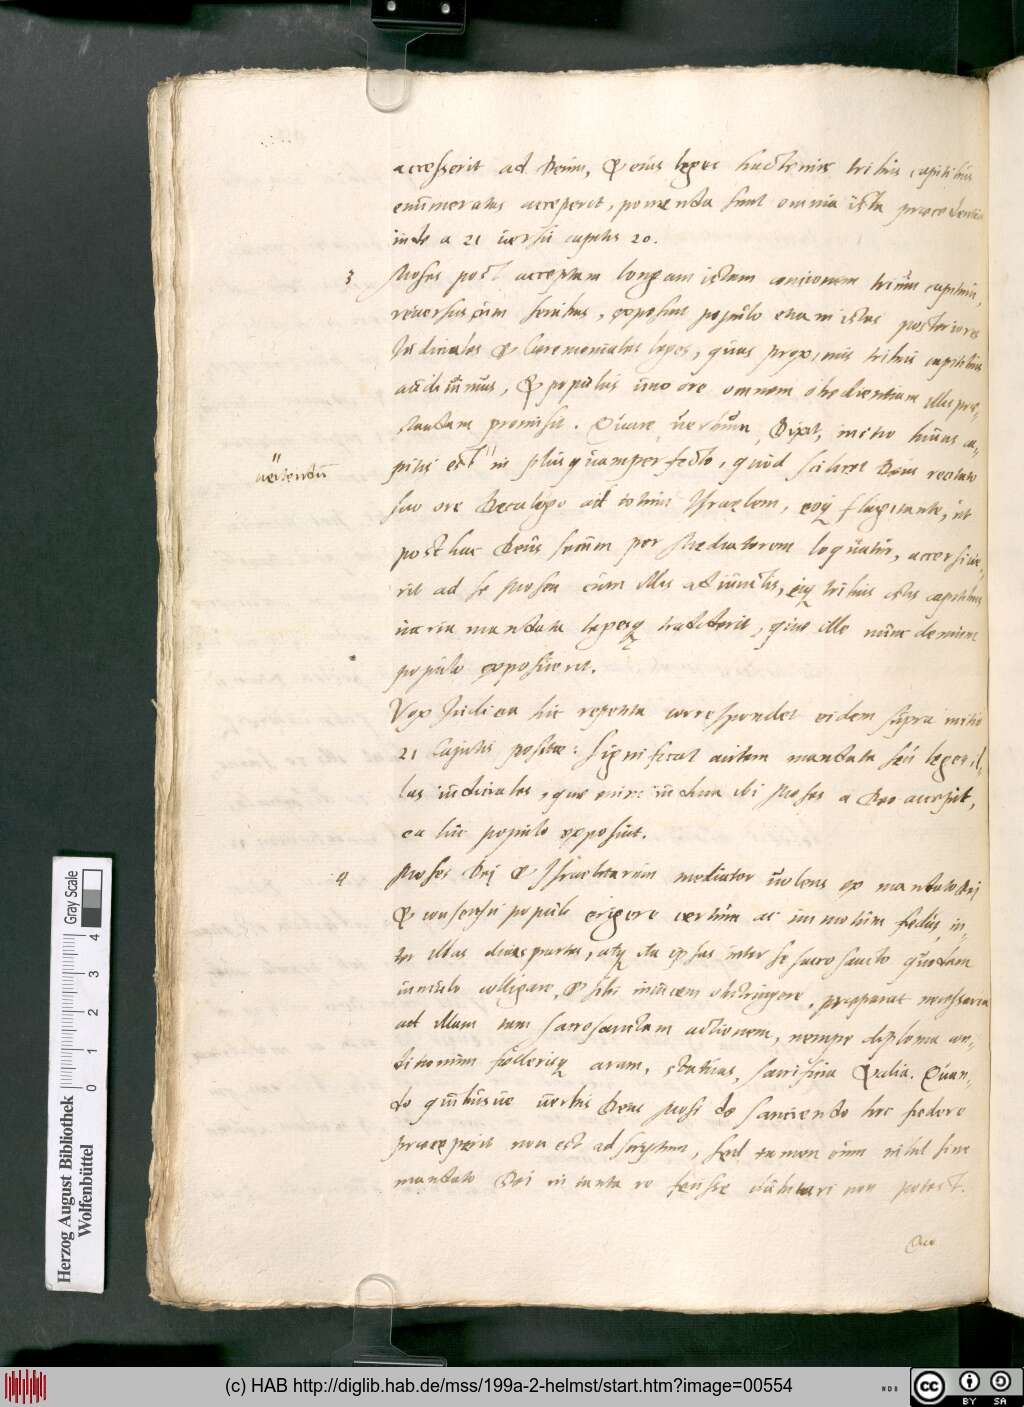 accesserit ad Deum, & eius leges hactenus tribus capitibus
enumeratas acceperit, ponenda sunt omnia ista praecedentia
inde a 21 versu capitis 20.
3 Moses post acceptam longam istam concionem trium capitum,
reversus cum senibus, exposuit populo etiam istas posteriores
Iudiciales & Ceremoniales leges, quas proximis tribus capitibus
audivimus, & populus uno ore omnem obedientiam illis prę-
standam promisit. Quare verbum, Dixit, initio huius ca-
pitis est " in plusquamperfecto, quod scilicet Deus recitato
" vertendum
suo ore Decalogo ad totum Israelem, eoq; flagitante, ut
posthac Deus secum per Mediatorem loquatur, accersive-
rit ad se Mosen cum illis adiunctis, eiq; tribus istis capitibus
varia mandata legesq; tradiderit, quae ille nunc demum
populo exposuerit.
Vox Iudicia hic repetita correspondet eidem supra initio
21 Capitis positae: Significat autem mandata seu leges il-
las iudiciales, quae enim iudicia ibi Moses a Deo accepit,
ea hic populo exposuit.
4 Moses Dei & Israelitarum mediator volens ex mandato Dei
& consensu populi erigere certum ac immotum fędus in-
ter illas duas partes, atq; ita ipsas inter se sacrosancto quodam
vinculo colligare, & sibi invicem obstringere, praeparat necessaria
ad illam tam sacrosanctam actionem, nempe diploma con-
ditionum fœderisq; aram, statuas, sacrificia & alia. Quan-
do quibusve verbis Deus Mosi de sanciendo hoc fœdere
praeceperit non est adscriptum, sed tamen eum nihil sine
mandato Dei in tanta re fecisse dubitari non potest.
Gray Scale
0 1 2 3 4
Herzog August Bibliothek
Wolfenbüttel
(c) HAB http://diglib.hab.de/mss/199a-2-helmst/start.htm?image=00554
cc BY SA